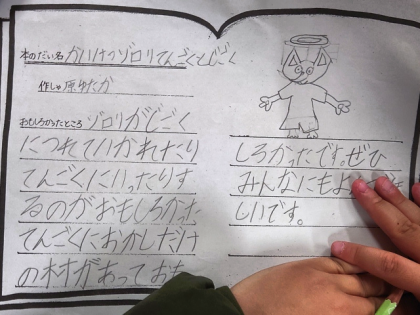 本のだい名 かいけつゾロリてんごくとじごく
作しゃ 原ゆたか
おもしろかったところ ゾロリがじごく
につれていかれたり
てんごくにいったりす
るのがおもしろかった
てんごくにおかしだけ
の村があっておも
しろかったです。ぜひ
みんなにもよ
しいです。